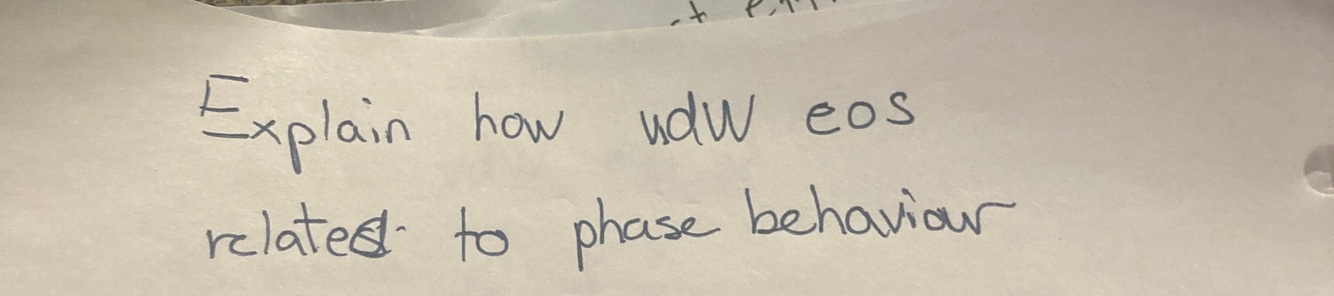 Explain how vdW eos
related to phase behaviour